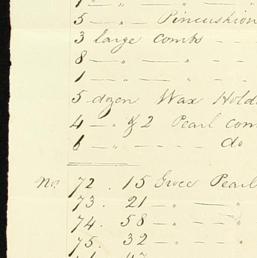 1 — " — " — " —
5 — — Pincushion
3 large Combs —
8 — — " —
1 — — " —
5 dozen Wax Hold
4 — " of 2 Pearl com
6 — — — do
No. 72 . 15 Groce Pearl
73. 21 — " — "
74. 58 — " — "
75. 32 — " — "